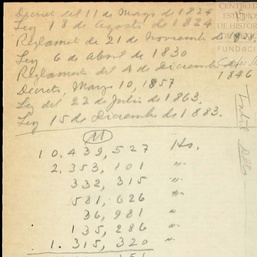 Decreto del 11 de Marzo de 1824
Ley 18 de Agosto de 1824.
Reglamento de 21 de Noviembre de 1828.
Ley 6 de Abril de 1830
Reglamento del 4 de Diciembre de
1846
Decreto, Marzo 10, 1857
Ley del 22 de Julio de 1863.
Ley 15 de Diciembre de 1883.
11
10,439,527 Hs.
2.353,101 "
332,315 "
581,626 "
36,981 "
135,286 "
1.315,320 "